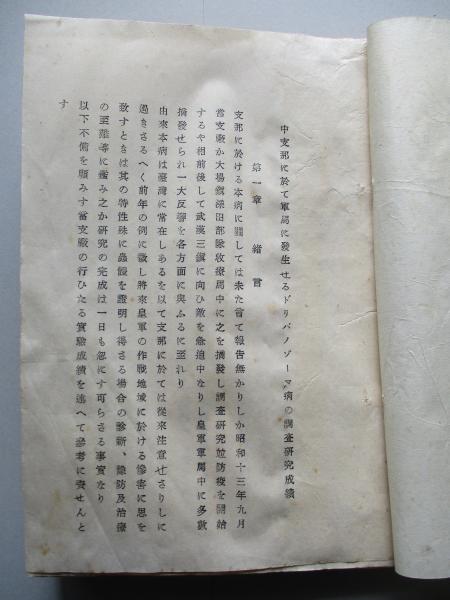 中支那に於て軍馬に發生せるトリパノゾーマ病の調査研究成績
第一章 緒言
支那に於ける本病に關しては未た曾て報告無かりしか昭和十三年九月
當支廠か大場鎭 部 收療馬中に之を摘發し調査研究並防疫を開始
するや相前後して武漢三鎭に向ひ敵を急追中なりし皇軍軍馬中に多數
摘發せられ一大反響を各方面に與ふるに至れり
由來本病は臺灣に常在しあるを以て支那に於ては從來注意せさりしに
過きさるへく前年の例に徴し將來皇軍の作戰地域に於ける慘害に思を
致すときは其の特性殊に蟲體を證明し得さる場合の診斷、豫防及治療
の至難等に鑑み之か研究の完成は一日も忽にす可らさる事實なり
以下不備を顧みす當支廠の行ひたる實驗成績を述へて參考に資せんと
す